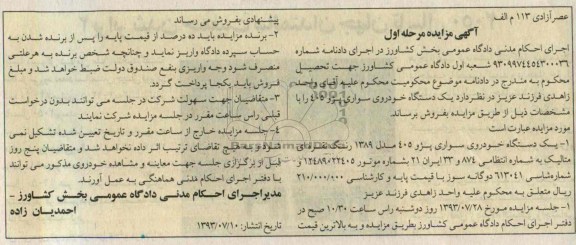 عصرآزادی ۱۱۳ م الف
آگهی مزایده مرحله اول
اجرای احکام مدنی دادگاه عمومی بخش کشاورز در اجرای دادنامه شماره
۹۳۰۹۹۷۴۴۵۴۳۰۰۰۳۶ شعبه اول دادگاه عمومی کشاورز جهت تحصیل
محکوم به مندرج در دادنامه موضوع محکومیت محکوم علیه آقای واحد
زاهدی فرزند عزیز در نظر دارد یک دستگاه خودروی سواری پژو ۴۰۵ را با
مشخصات ذیل از طریق مزایده بفروش برساند.
مورد مزایده عبارت است
۱- یک دستگاه خودروی سواری پژو ۴۰۵ مدل ۱۳۸۹ رنگ نقره‌ای
متالیک به شماره انتظامی ۸۷۴ و ۳۳ ایران ۲۱ بشماره موتور ۱۲۴۸۹۰۲۲۴۰۵ و
شماره شاسی ۶۱۳۰۴۱ دوگانه سوز با قیمت پایه و کارشناسی ۲۱۰/۰۰۰/۰۰۰
ریال متعلق به محکوم علیه واحد زاهدی فرزند عزیز
۱- جلسه مزایده مورخ ۱۳۹۳/۰۷/۲۸ روز دوشنبه راس ساعت ۱۰/۳۰ صبح در
دفتر اجرای احکام دادگاه عمومی کشاورز بطریق مزایده و به بالاترین قیمت
پیشنهادی بفروش می رساند
۲- برنده مزایده باید ده درصد از قیمت پایه را پس از برنده شدن به
حساب سپرده دادگاه واریز نماید و چنانچه شخص برنده به هر علتی
منصرف شود وجه واریزی بنفع صندوق دولت ضبط خواهد شد و مبلغ
فروش باید یکجا پرداخت گردد.
۳- متقاضیان جهت سهولت شرکت در جلسه می توانند بدون درخواست
قبلی راس ساعت مقرر در جلسه مزایده شرکت نمایند
۴- جلسه مزایده خارج از ساعت مقرر و تاریخ تعیین شده تشکیل نمی
شود و به هیچ تقاضای ترتیب اثر داده نخواهد شد و متقاضیان پنج روز
قبل از برگزاری جلسه جهت معاینه و مشاهده خودروی مذکور می توانند
با دفتر اجرای احکام مدنی هماهنگی به عمل آورند.
مدیر اجرای احکام مدنی دادگاه عمومی بخش کشاورز -
احمدیان زاده
تاریخ انتشار: ۱۳۹۳/۰۷/۱۰